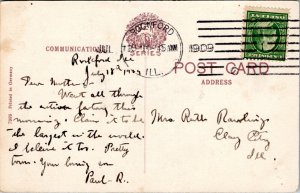 COMMUNICATION
SERIES
ROCKFORD
JUL
1909
ILL.
POST CARD
ADDRESS
Rockford Ill
July 18th 1909
Dear Mother
Went all through
the
factory this
morning. Claim it to be
the largest in the world.
I believe it too. Pretty
town. Your loving son
Paul R.
Mrs. Ruth Rawlings
Clay City
Ill.
Printed in Germany